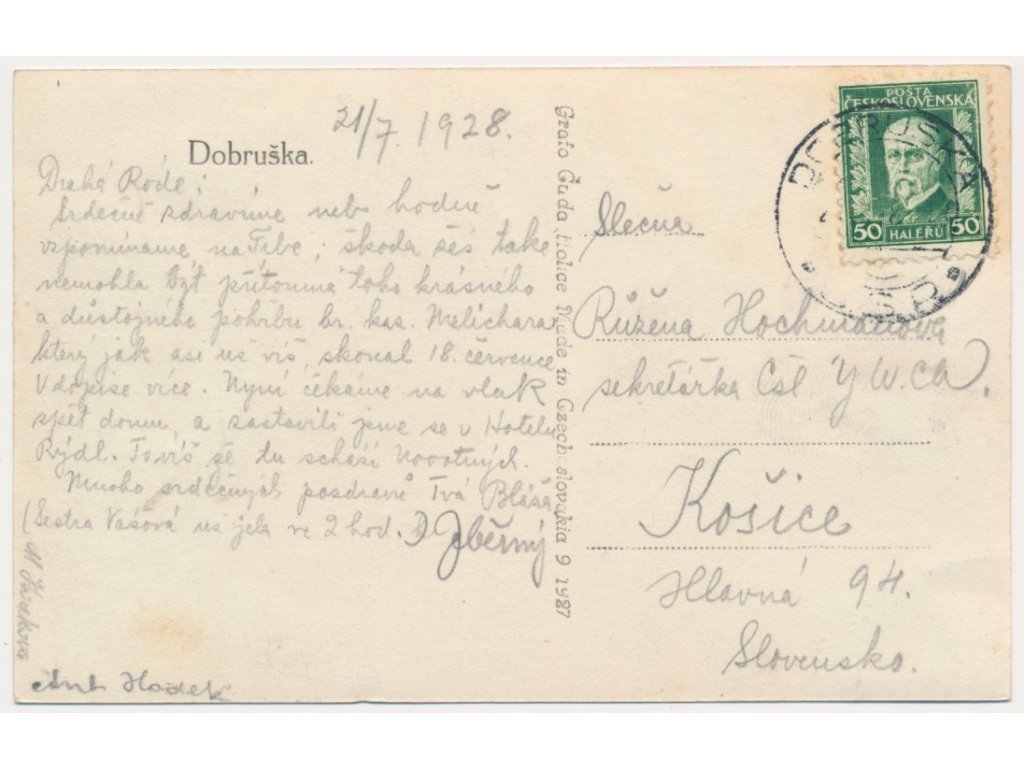 21/7. 1928.
Dobruška.
Drahá Rode!
Srdečně zdravíme neb hodně
vzpomínáme na Tebe; škoda žes také
nemohla být přítomna toho krásného
a důstojného pohřbu br. kas. Melichara
který jak asi už víš, skonal 18. července
V dopise více. Nyní čekáme na vlak
spět domu, a zastavili jsme se v Hotelu
Rýdl. To víš že tu schází Novotných.
Mnoho srdečných pozdravů Tvá Bláža
(Sestra Vašová už jela ve 2 hod.
Ant Hodek
Grafo Čuda Holice Made in Czechoslovakia 9 1927
POŠTA
ČESKOSLOVENSKÁ
50 HALÉŘŮ 50
DOBRUŠKA
ČSR
Slečna
Růžena Hochmanova
sekretářka Čsl YWCA.
Košice
Hlavná 94.
Slovensko.